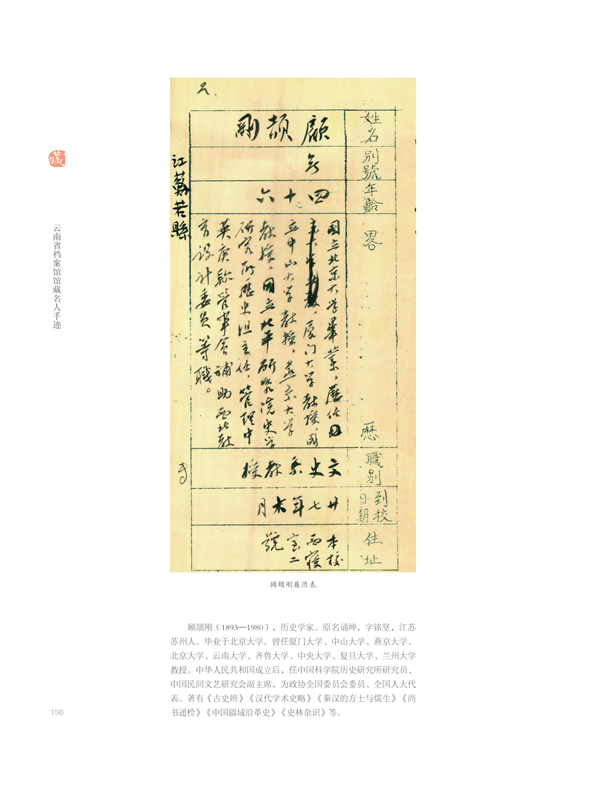 藏
云南省档案馆馆藏名人手迹
姓名
顾颉刚
別號
年齡
四十六
江蘇吳縣
畧歷
國立北京大學畢業，歷任
厦门大学教授，國
立中山大学教授，燕京大学
教授，國立北平研究院史学
研究所歷史組主任，管理中
英庚款董事會補助西北教
育设计委员等職。
職別
文史系教授
到校日期
廿七年 月
住址
本校
西寝
室二
號
顾颉刚履历表
顾颉刚（1893—1980），历史学家。原名诵坤，字铭坚，江苏
苏州人。毕业于北京大学。曾任厦门大学、中山大学、燕京大学、
北京大学、云南大学、齐鲁大学、中央大学、复旦大学、兰州大学
教授。中华人民共和国成立后，任中国科学院历史研究所研究员、
中国民间文艺研究会副主席，为政协全国委员会委员、全国人大代
表。著有《古史辨》《汉代学术史略》《秦汉的方士与儒生》《尚
书通检》《中国疆域沿革史》《史林杂识》等。
156